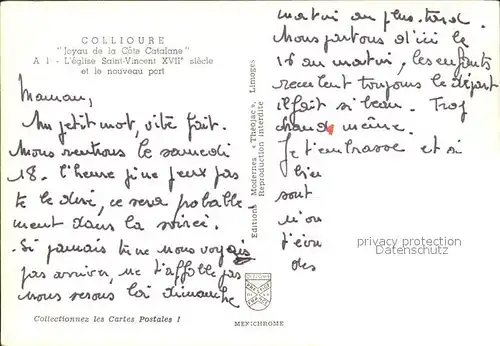 COLLIOURE
"Joyau de la Côte Catalane"
A 1 - L'église Saint-Vincent XVII° siècle
et le nouveau port
Maman,
Un petit mot, vite fait.
Nous rentrons le samedi
18. l'heure je ne peux pas
te le dire, ce sera probable
ment dans la soirée.
Si jamais tu ne nous voyais
pas arriver, ne t'affole pas
nous serons là dimanche
matin au plus tard.
Nous partons d'ici le
16 au matin, les enfants
reculent toujours le départ
il fait si beau. Trop
chaud même.
Je t'embrasse et si
bien
sont
Editions Modernes «Théojac», Limoges
Reproduction interdite
privacy protection
Datenschutz
Collectionnez les Cartes Postales !
MEFICHROME